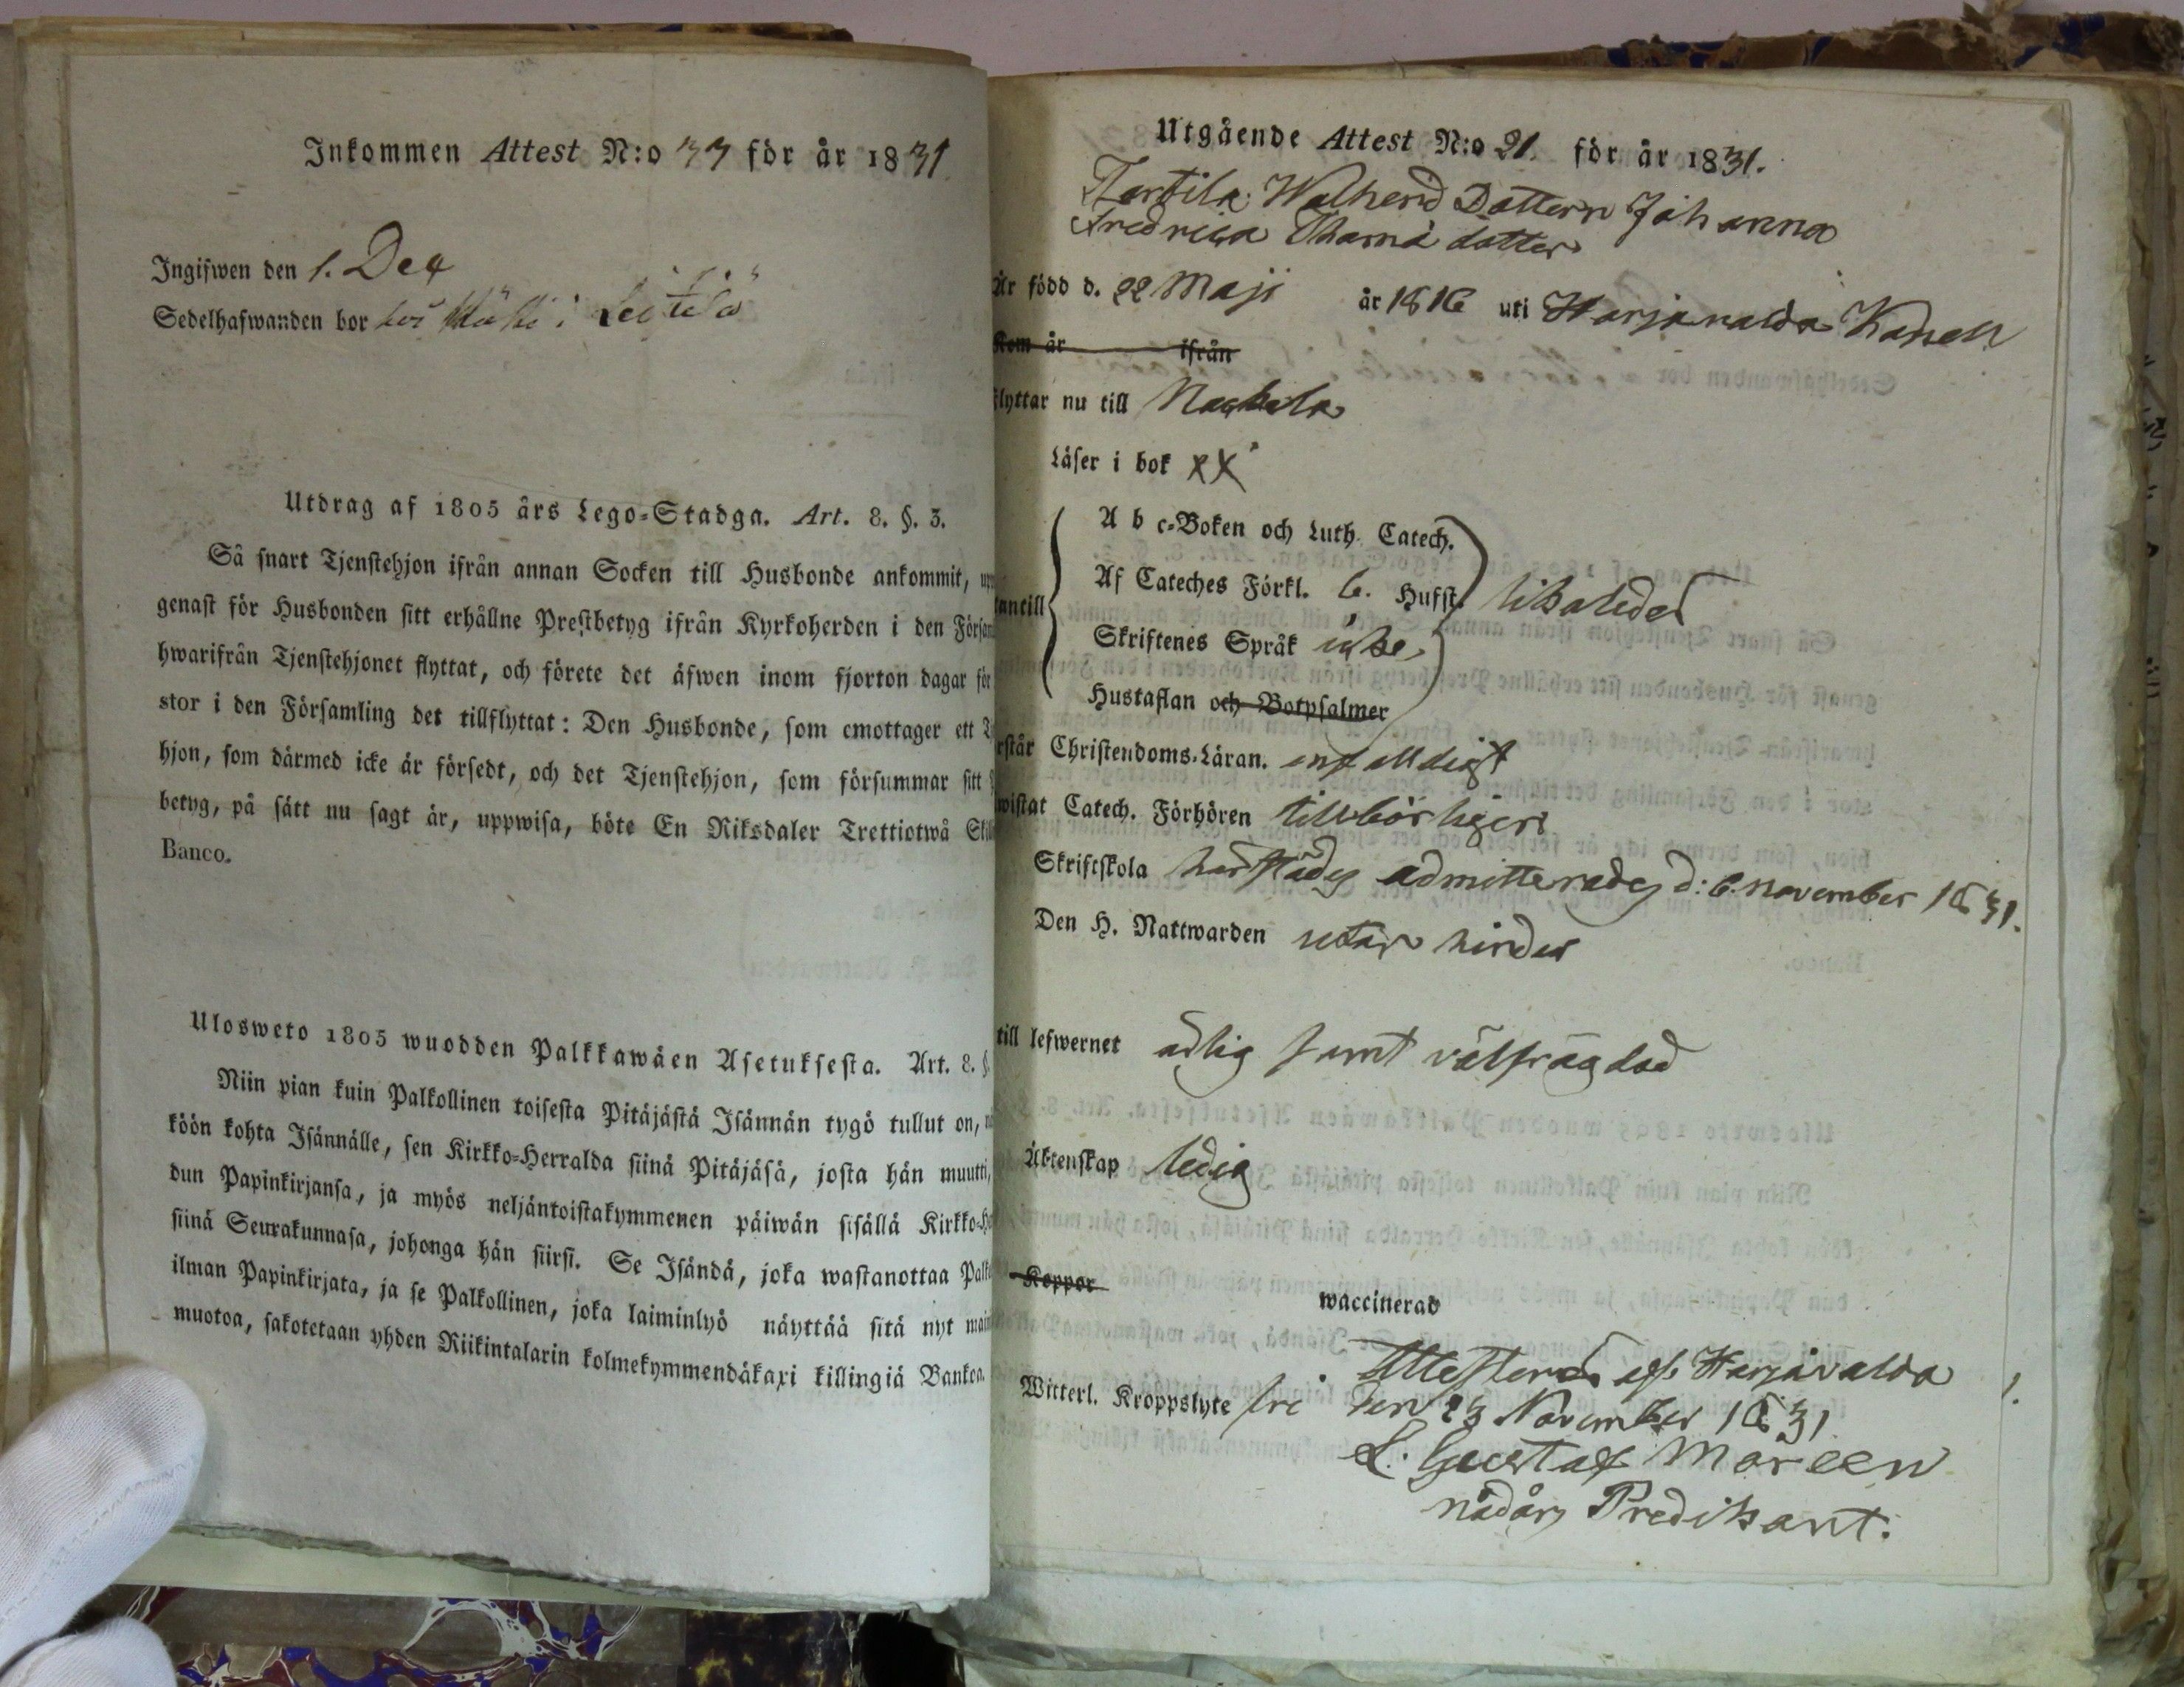 Inkommen Attest N:o 33 för år 1831
Ingifwen den 1. Dec
Sedelhafwanden bor hos i Leitilä
Utdrag af 1805 års Lego-Stadga. Art. 8. §. 3.
Så snart Tjenstehjon ifrån annan Socken till Husbonde ankommit, upp
genast för Husbonden sitt erhållne Prestbetyg ifrån Kyrkoherden i den Försam
hwarifrån Tjenstehjonet flyttat, och förete det äfwen inom fjorton dagar för
stor i den Församling det tillflyttat: Den Husbonde, som emottager ett T
hjon, som därmed icke är försedt, och det Tjenstehjon, som försummar sitt
betyg, på sätt nu sagt är, uppwisa, böte En Riksdaler Trettiotwå Skill
Banco.
Ulosweto 1805 wuodden Palkkawäen Asetuksesta. Art. 8. §.
Niin pian kuin Palkollinen toisesta Pitäjästä Isännän tygö tullut on,
köön kohta Isännälle, sen Kirkko-Herralda siinä Pitäjäsä, josta hän muutti,
dun Papinkirjansa, ja myös neljäntoistakymmenen päiwän sisällä Kirkko-He
siinä Seurakunnasa, johonga hän siirsi. Se Isändä, joka wastanottaa Palko
ilman Papinkirjata, ja se Palkollinen, joka laiminlyö näyttää sitä nyt main
muotoa, sakotetaan yhden Riikintalarin kolmekymmendäkaxi killingiä Bankoa.
Utgående Attest N:o 21. för år 1831.
Torfila Walhend Dottern Johanna
Fredrica Thoma dotter
Är född d. 22 Maji år 1816 uti Harjavalda Kapell
Kom år ifrån
flyttar nu till Nackila
Läser i bok XX
A b c-Boken och Luth. Catech.
Af Cateches Förkl. 6. Hufst. likaledes
antill
Skriftenes Språk icke
Hustaflan och Botpsalmer
rstår Christendoms-Läran. enfalldigt
wistat Catech. Förhören tillbörligen
Skriftskola härstädes admitterades d: 6. November 1831.
Den H. Nattwarden utan hinder
till lefwernet ärlig samt välfrägdad
Äktenskap ledig
Koppor
waccinerad
Witterl. Kroppslyte fri
Attesterar af Harjavalda
den 23 November 1831
L. Gustaf Moreen
nådårs Predikant.